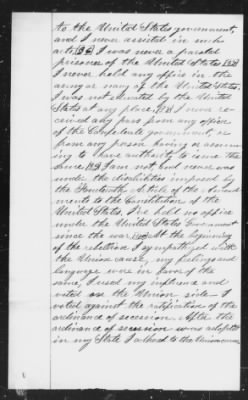 to the United States government,
and I never assisted in such
acts. I was never a paroled
prisoner of the United States
I never held any office in the
army or navy of the United States.
I was not arrested by the United
States at any place. I never re-
ceived any pass from any officer
of the Confederate government, or
from any person having or assum-
ing to have authority to issue the
same. I am not and never was
under the disabilities imposed by
the Fourteenth Article of the Amend-
ments to the Constitution of the
United States. I've held no office
under the United States Government
since the war. At the beginning
of the rebellion I sympathized with
the Union cause, my feelings and
language were in favor of the
same, I used my influence and
voted on the Union side - I
voted against the ratification of the
ordinance of secession. After the
ordinance of secession was adopted
in my State I adhered to the Union cause